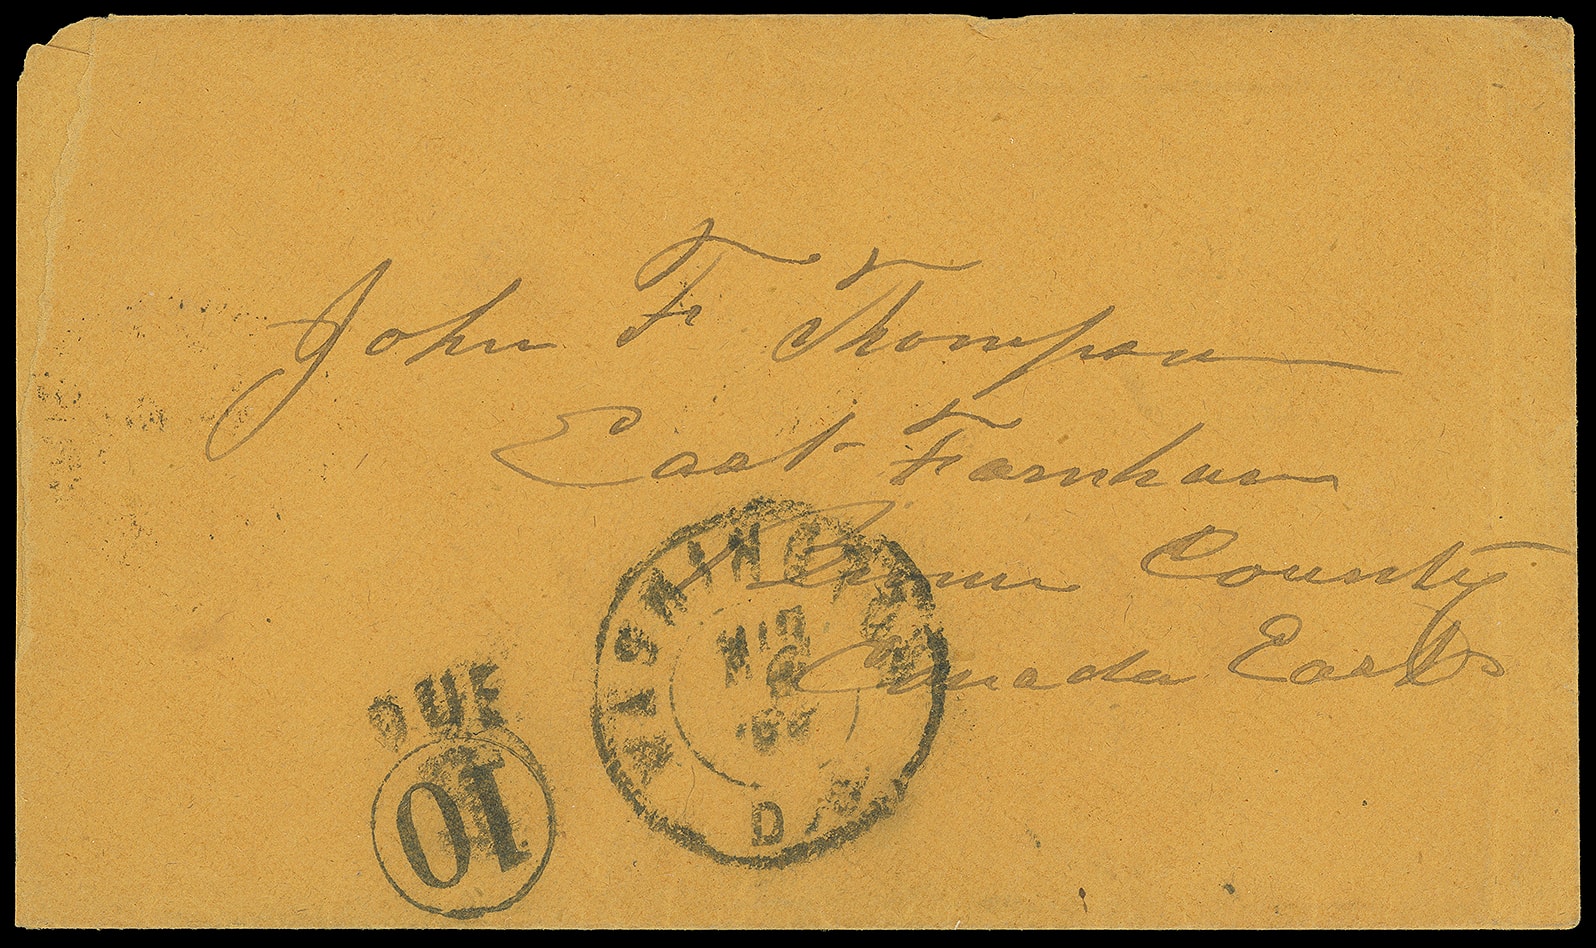 John F Thompson
East Farnham
Brome County
Canada East
WASHINGTON
6
D
DUE
10